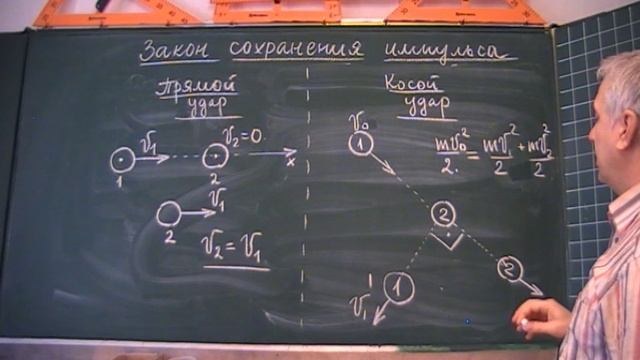 Закон сохранения импульса
Прямой
удар
V₁
V₂=0
1
2
x
V₁
2
V₂ = V₁
Косой
удар
V₀
1
mV₀²/2 = mV₁²/2 + mV₂²/2
2
1
V₁'
2